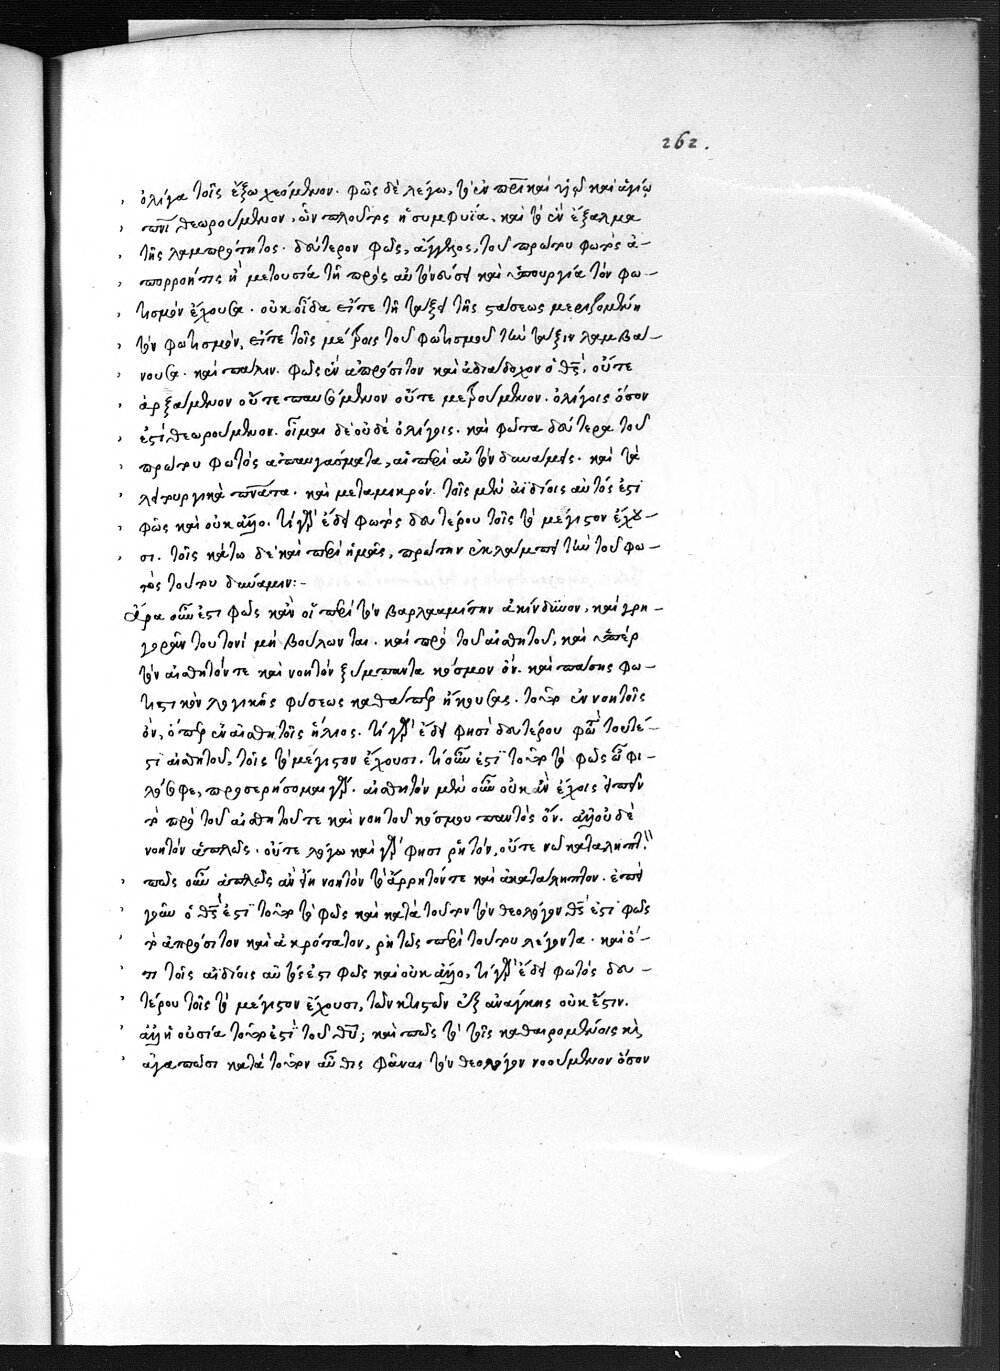 262.
ὀλίγα τοῖς ἔξω χεόμενον. φῶς δὲ λέγω, τὸ ἐν πρὶ καὶ υἱῷ καὶ ἁγίῳ
πνι θεωρούμενον, ὧν πλοῦτος ἡ συμφυΐα, καὶ τὸ ἓν ἔξαλμα
τῆς λαμπρότητος. δεύτερον φῶς, ἄγγελος, τοῦ πρώτου φωτὸς ἀ-
πορροή τις ἢ μετουσία τῇ πρὸς αὐτὸν νεύσει καὶ ὑπουργία τὸν φω-
τισμὸν ἔχουσα. οὐκ οἶδα εἴτε τῇ τάξει τῆς στάσεως μεριζομένη
τὸν φωτισμόν, εἴτε τοῖς μέτροις τοῦ φωτισμοῦ τὴν τάξιν λαμβά-
νουσα. καὶ πάλιν. φῶς ἓν ἀπρόσιτον καὶ ἀδιάδοχον ὁ θς, οὔτε
ἀρξάμενον οὔτε παυσόμενον οὔτε μετρούμενον. ὀλίγοις ὅσον
ἐστὶ θεωρούμενον. οἶμαι δὲ οὐδὲ ὀλίγοις. καὶ φῶτα δεύτερα τοῦ
πρώτου φωτὸς ἀπαυγάσματα, αἱ περὶ αὐτὸν δυνάμεις. καὶ τὰ
λειτουργικὰ πνατα. καὶ μεταμικρόν. τοῖς μὲν ἀϊδίοις αὐτός ἐστι
φῶς καὶ οὐκ ἄλλο. τί γὰρ ἔδει φωτὸς δευτέρου τοῖς τὸ μέγιστον ἔχου-
σι. τοῖς κάτω δὲ καὶ περὶ ἡμᾶς, πρώτην ἐκλάμπει τὴν τοῦ φω-
τὸς τούτου δύναμιν:-
Ἆρα οὖν ἐστι φῶς κἂν οἱ περὶ τὸν βαρλααμίτην ἀκίνδυνον, καὶ γρη-
γορᾶν τουτονὶ μὴ βούλωνται. καὶ πρὸ τοῦ αἰσθητοῦ, καὶ ὑπὲρ
τὸν αἰσθητόν τε καὶ νοητὸν ξύμπαντα κόσμον ὄν. καὶ πάσης φω-
τιστικὸν λογικῆς φύσεως καθάπερ ἤκουσας. τοῦτο ἐν νοητοῖς
ὄν, ὅπερ ἐν αἰσθητοῖς ἥλιος. τί γὰρ ἔδει φησὶ δευτέρου φωτὸς τουτέ-
στι αἰσθητοῦ, τοῖς τὸ μέγιστον ἔχουσι. τί οὖν ἐστι τοῦτο τὸ φῶς ὦ φι-
λόσοφε, προσερήσομαι γάρ. αἰσθητὸν μὲν οὖν οὐκ ἂν ἔχοις εἰπεῖν
τὸ πρὸ τοῦ αἰσθητοῦ τε καὶ νοητοῦ κόσμου παντὸς ὄν. ἀλλ' οὐδὲ
νοητὸν ἁπλῶς. οὔτε λόγῳ καὶ γάρ φησι ῥητόν, οὔτε νῷ καταληπτ.
πῶς οὖν ἁπλῶς ἂν εἴη νοητὸν τὸ ἄρρητόν τε καὶ ἀκατάληπτον. ἐπεὶ
γοῦν ὁ θς ἐστι τοῦτο τὸ φῶς καὶ κατὰ τοῦτον τὸν θεολόγον θς ἐστι φῶς
τὸ ἀπρόσιτον καὶ ἀκρότατον, ῥητῶς περὶ τούτου λέγοντα. καὶ ὅ-
τι τοῖς ἀϊδίοις αὐτός ἐστι φῶς καὶ οὐκ ἄλλο, τί γὰρ ἔδει φωτὸς δευ-
τέρου τοῖς τὸ μέγιστον ἔχουσι, τῶν κτιστῶν ἐξ ἀνάγκης οὐκ ἔστιν.
ἀλλ' ἡ οὐσία τοῦτό ἐστι τοῦ θυ; καὶ πῶς τὸ τοῖς καθαιρομένοις κἀν
ἀγαπῶσι κατὰ τοῦτον αὖθις φάναι τὸν θεολόγον νοούμενον ὅσον